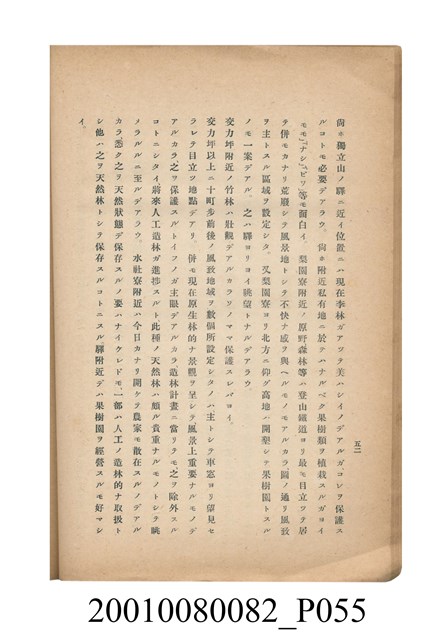 五二
尙ホ獨立山ノ驛ニ近イ位置ニハ現在李林ガアツテ美ハシイノデアルガコレヲ保護ス
ルコトモ必要デアラウ。尙ホ附近私有地ニ於テハナルベク果樹類ヲ植栽スルガヨイ
モモ、ナシ、ビワ、等モ面白イ。梨園寮附近ノ原野森林等ハ登山鐵道ヨリ最モ目立ツテ居
ラ併モカナリ荒廢シテ風景地トシテ不快ナ感ヲ與ヘルモノモアルカラ圖ノ通リ風致
ヲ主トスル區域ヲ設定シタ。又梨園寮ヨリ北方ニ仰グ高地ハ開墾シテ果樹園トスル
ノモ一案デアル、之ハ驛ヨリヨイ眺望トナルデアラウ
交力坪附近ノ竹林ハ壯觀デアルカラソノママ保護スレバヨイ。
交力坪以上ニ十町步前後ノ風致地域ヲ數個所設定シタノハ主トシテ車窓ヨリ望見セ
ラレテ目立ツ地點デアリ、併モ現在原生林的ナ景觀ヲ呈シテ風景上重要ナルモノデ
アルカラ之ヲ保護スルトイフノガ主眼デアルカラ造林計畫ニ當リテモ之ヲ除外スル
コトニシタイ將來人工造林ガ進捗スルト此種ノ天然林ハ頗ル貴重ナルモノトシテ眺
メラルルニ至ルデアラウ、水社寮附近ハ今日カナリ開ケテ農家モ散在スルノデアル
カラ、悉ク之ヲ天然狀態デ保存スルノ要ハナイケレドモ、一部ハ人工ノ造林的ナ取扱ト
シ他ハ之ヲ天然林トシテ保存スルコトニスル驛附近デハ果樹園ヲ經營スルモ好マシ
イ。
20010080082_P055